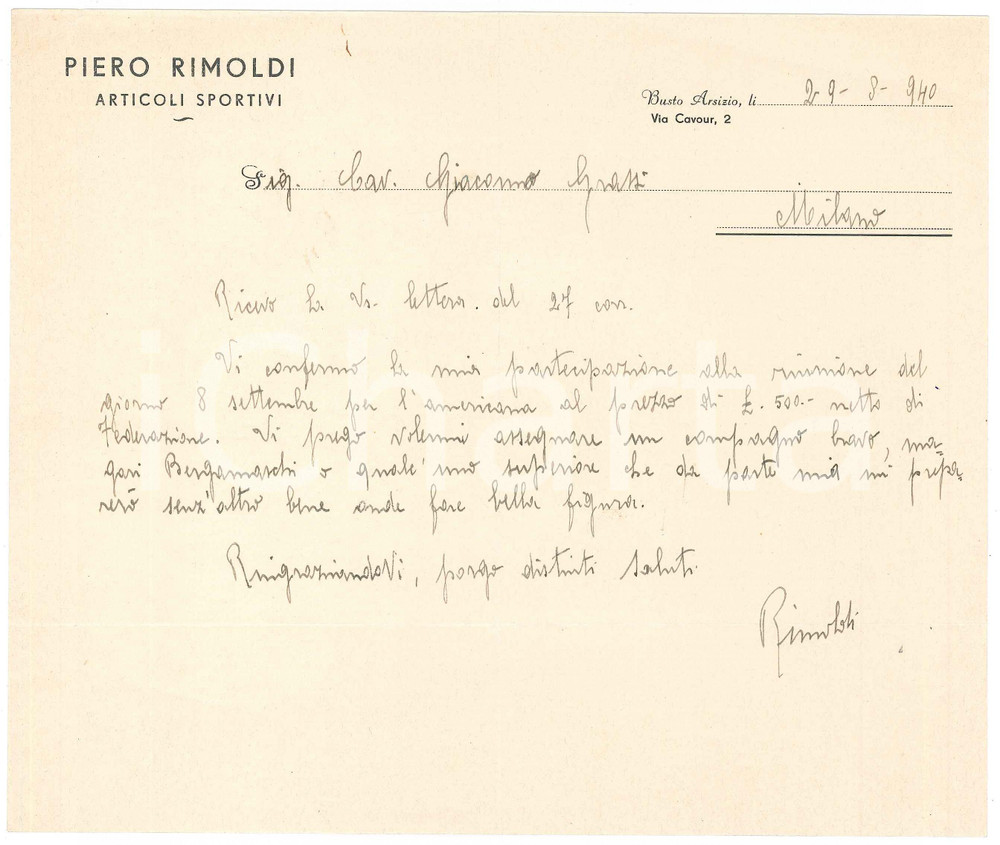 PIERO RIMOLDI
ARTICOLI SPORTIVI
Busto Arsizio, li 29-8-940
Via Cavour, 2
Sig. Cav. Giacomo Grassi
Milano
Ricevo la Vs- lettera. del 27 corr.
Vi confermo la mia partecipazione alla riunione del
giorno 8 settembre per l'americana al prezzo di £. 500.- netto di
Federazione. Vi prego volermi assegnare un compagno bravo, ma=
gari Bergamaschi o qualc'uno superiore che da parte mia mi prepa=
rerò senz'altro bene onde fare bella figura.
RingraziandoVi, porgo distinti saluti
Rimoldi